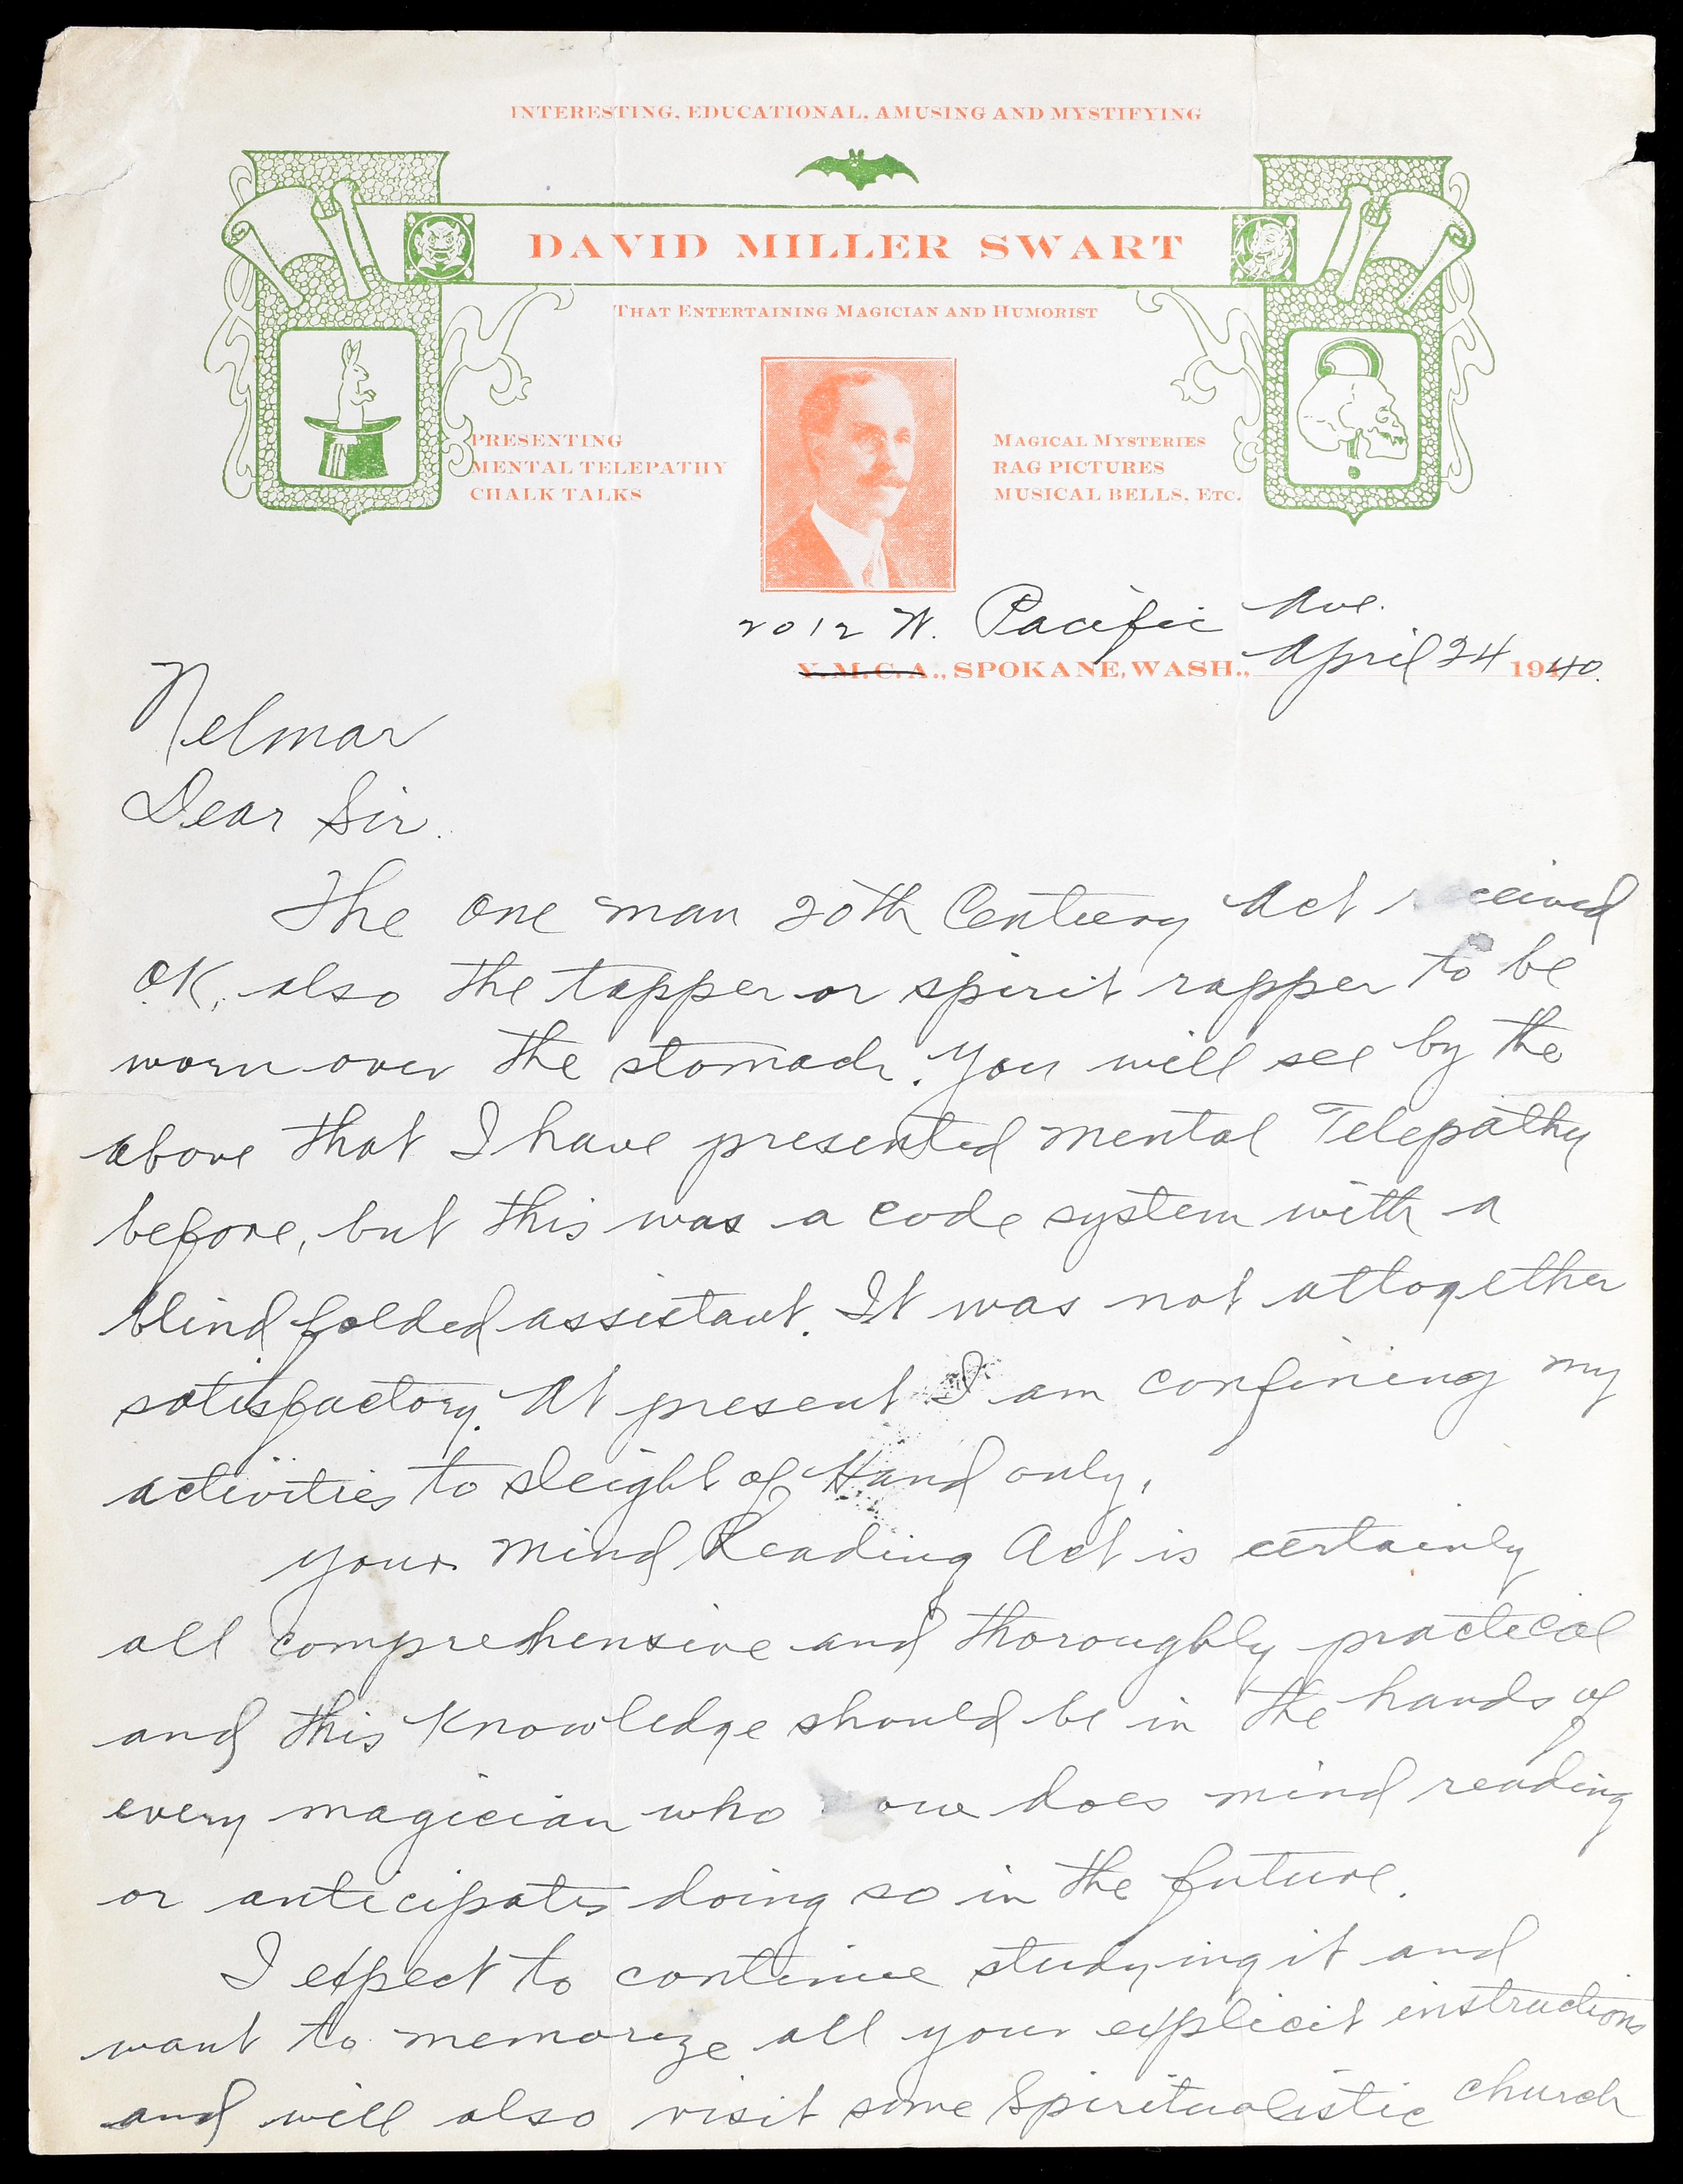 INTERESTING, EDUCATIONAL, AMUSING AND MYSTIFYING
DAVID MILLER SWART
THAT ENTERTAINING MAGICIAN AND HUMORIST
PRESENTING
MENTAL TELEPATHY
CHALK TALKS
MAGICAL MYSTERIES
RAG PICTURES
MUSICAL BELLS, ETC.
2012 W. Pacific Ave.
Y.M.C.A., SPOKANE, WASH., April 24 1940.
Nelmar
Dear Sir.
The one man 20th Century Act received
OK, also the tapper or spirit rapper to be
worn over the stomach. You will see by the
above that I have presented mental Telepathy
before, but this was a code system with a
blindfolded assistant. It was not altogether
satisfactory. At present I am confining my
activities to sleight of Hand only.
Your Mind Reading Act is certainly
all comprehensive and thoroughly practical
and this knowledge should be in the hands of
every magician who now does mind reading
or anticipates doing so in the future.
I expect to continue studying it and
want to memorize all your explicit instructions
and will also visit some Spiritualistic church